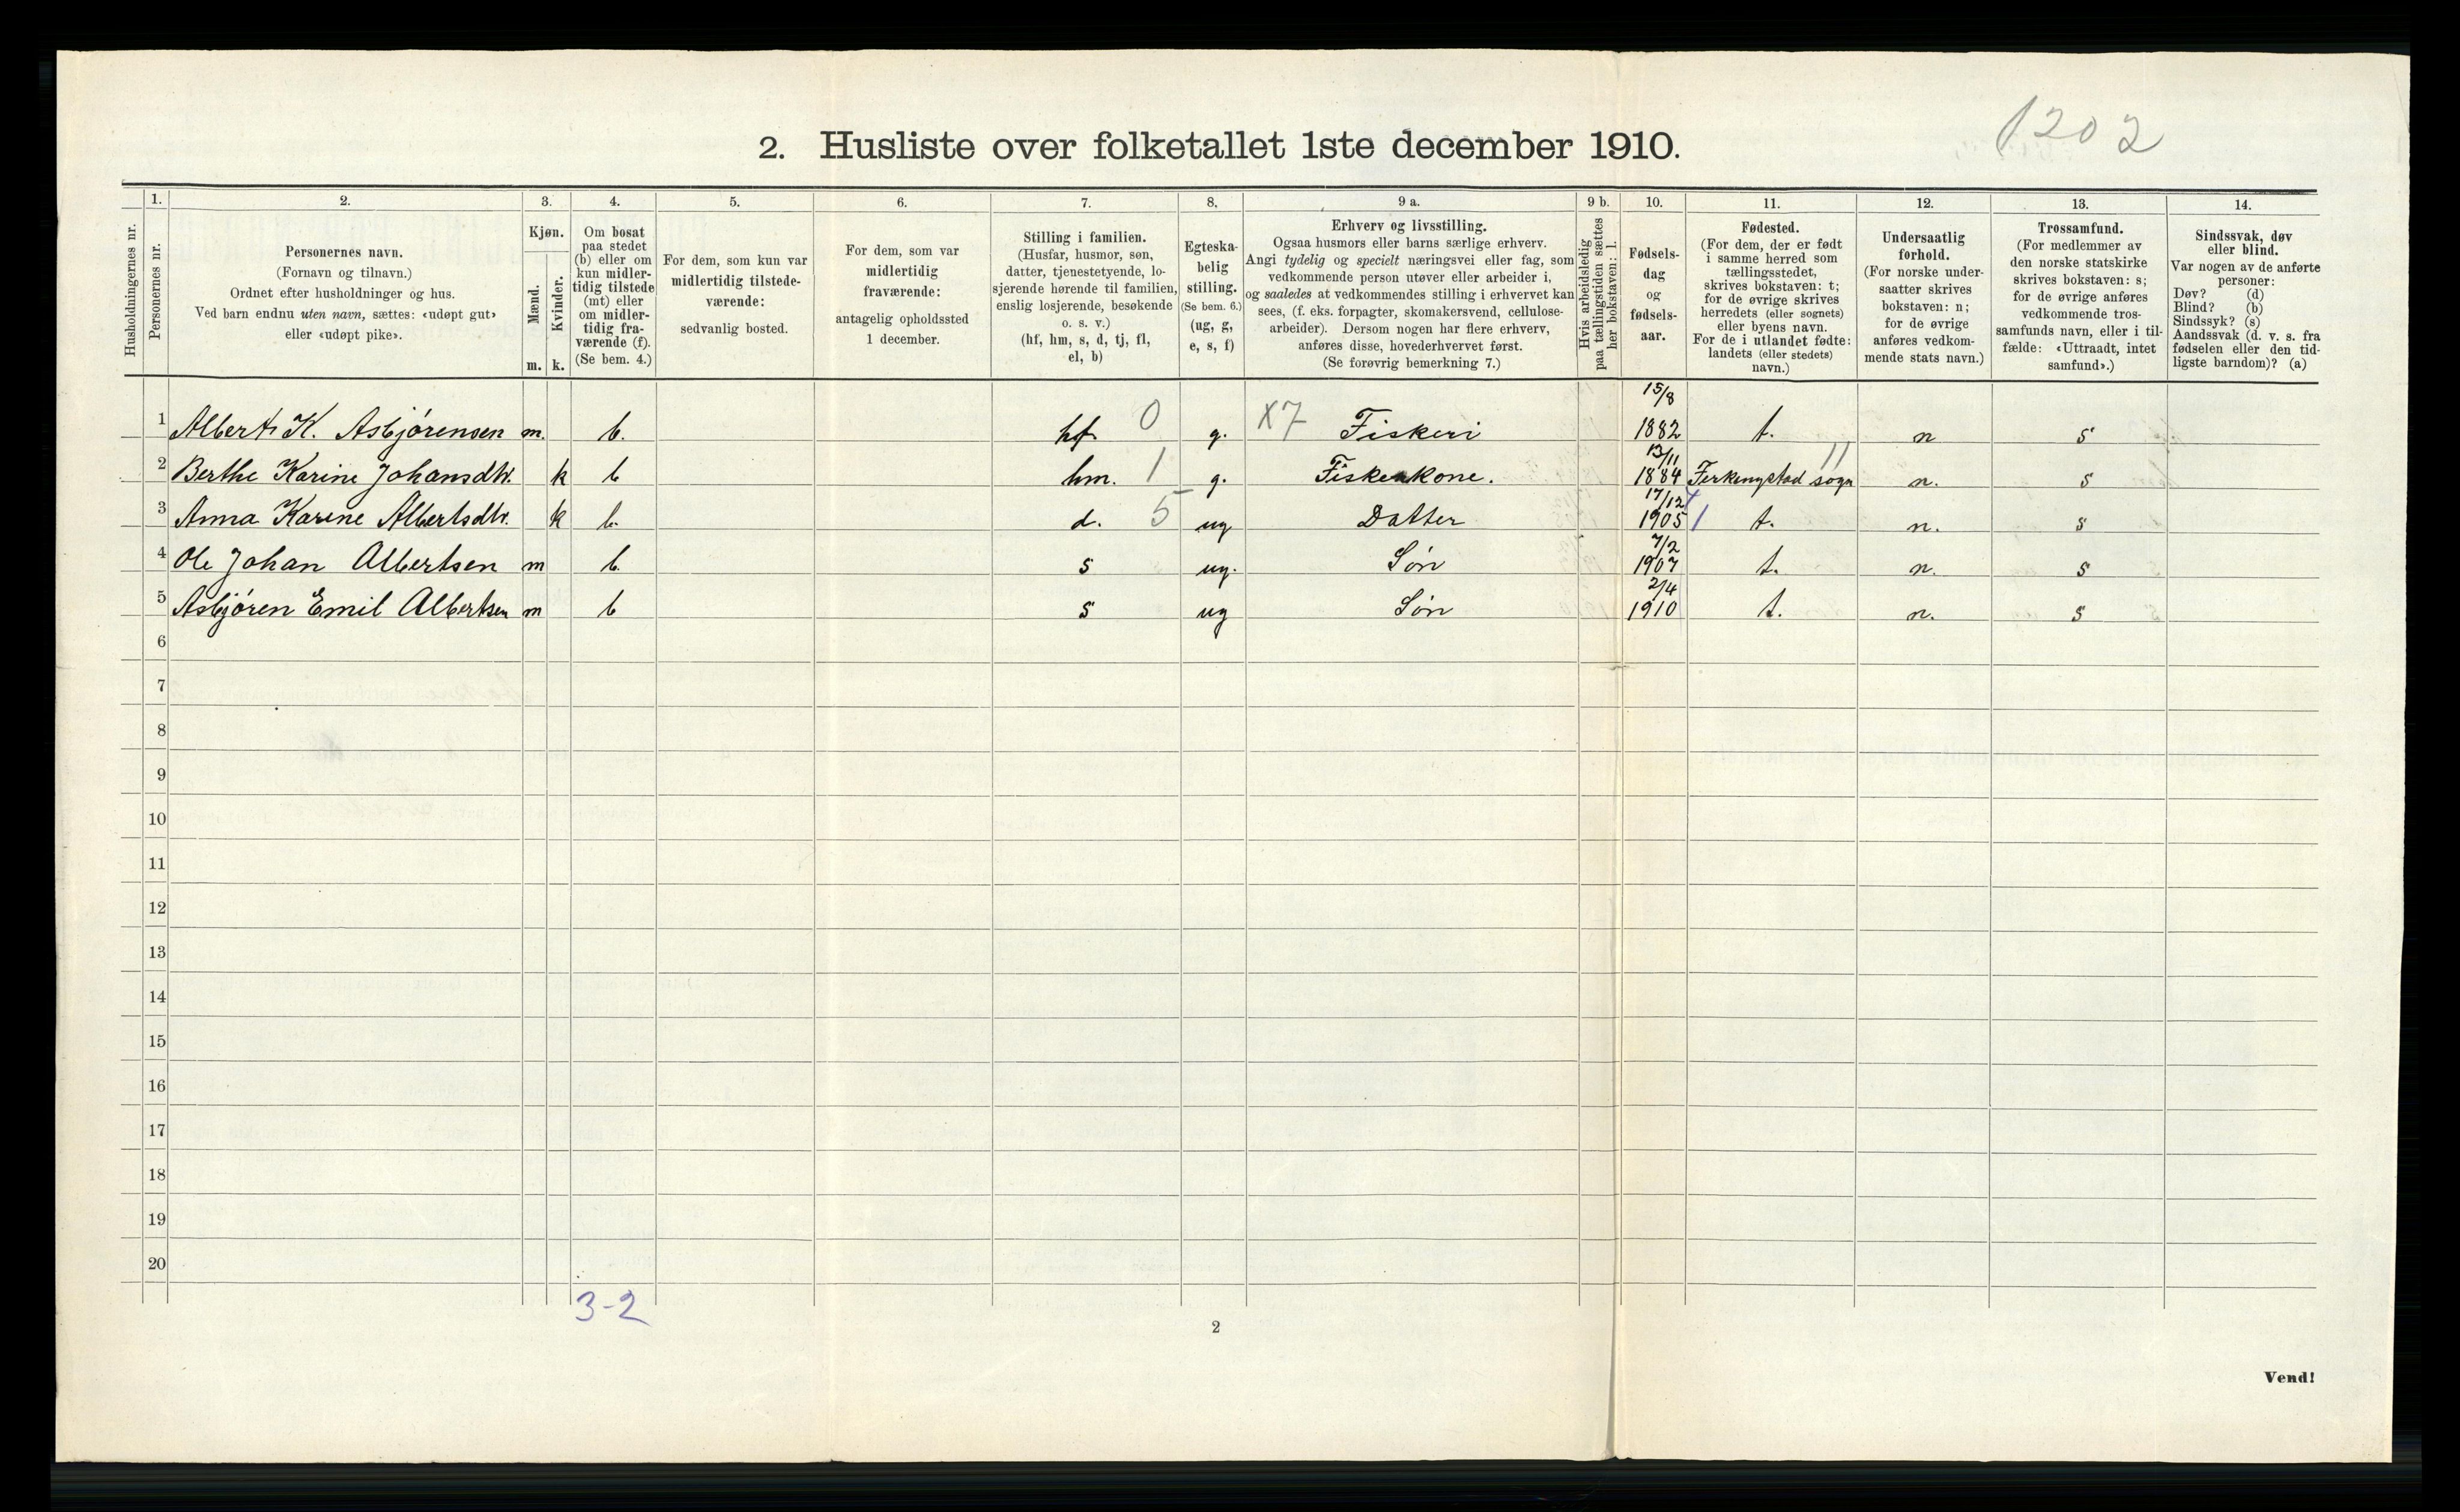 1202
2. Husliste over folketallet 1ste december 1910.
Husholdningernes nr.
1. Personernes nr.
2. Personernes navn. (Fornavn og tilnavn.) Ordnet efter husholdninger og hus. Ved barn endnu uten navn, sættes: «udøpt gut» eller «udøpt pike».
3. Kjøn. Mænd. m. Kvinder. k.
4. Om bosat paa stedet (b) eller om kun midlertidig tilstede (mt) eller om midlertidig fraværende (f). (Se bem. 4.)
5. For dem, som kun var midlertidig tilstedeværende: sedvanlig bosted.
6. For dem, som var midlertidig fraværende: antagelig opholdssted 1 december.
7. Stilling i familien. (Husfar, husmor, søn, datter, tjenestetyende, losjerende hørende til familien, enslig losjerende, besøkende o. s. v.) (hf, hm, s, d, tj, fl, el, b)
8. Egteskabelig stilling. (Se bem. 6.) (ug, g, e, s, f)
9 a. Erhverv og livsstilling. Ogsaa husmors eller barns særlige erhverv. Angi tydelig og specielt næringsvei eller fag, som vedkommende person utøver eller arbeider i, og saaledes at vedkommendes stilling i erhvervet kan sees, (f. eks. forpagter, skomakersvend, cellulosearbeider). Dersom nogen har flere erhverv, anføres disse, hovederhvervet først. (Se forøvrig bemerkning 7.)
9 b. Hvis arbeidsledig paa tællingstiden sættes her bokstaven: l.
10. Fødselsdag og fødselsaar.
11. Fødested. (For dem, der er født i samme herred som tællingsstedet, skrives bokstaven: t; for de øvrige skrives herredets (eller sognets) eller byens navn. For de i utlandet fødte: landets (eller stedets) navn.)
12. Undersaatlig forhold. (For norske undersaatter skrives bokstaven: n; for de øvrige anføres vedkommende stats navn.)
13. Trossamfund. (For medlemmer av den norske statskirke skrives bokstaven: s; for de øvrige anføres vedkommende trossamfunds navn, eller i tilfælde: «Uttraadt, intet samfund».)
14. Sindssvak, døv eller blind. Var nogen av de anførte personer: Døv? (d) Blind? (b) Sindssyk? (s) Aandssvak (d. v. s. fra fødselen eller den tidligste barndom)? (a)
1 Albert K. Asbjørensen m. b. hf. 0 g. X7 Fiskeri 15/8 1882 t. n s
2 Berthe Karine Johansdtr. k b hm. 1 g. Fiskerkone. 13/11 1884 Ferkingstad sogn 11 n. s
3 Anna Karine Albertsdtr. k b. d. 5 ug Datter 17/12 1905 1 t. n. s
4 Ole Johan Albertsen m b. s ug. Søn 7/2 1907 t. n. s
5 Asbjøren Emil Albertsen m b s ug Søn 2/4 1910 t. n. s
6
7
8
9
10
11
12
13
14
15
16
17
18
19
20
3-2
2
Vend!